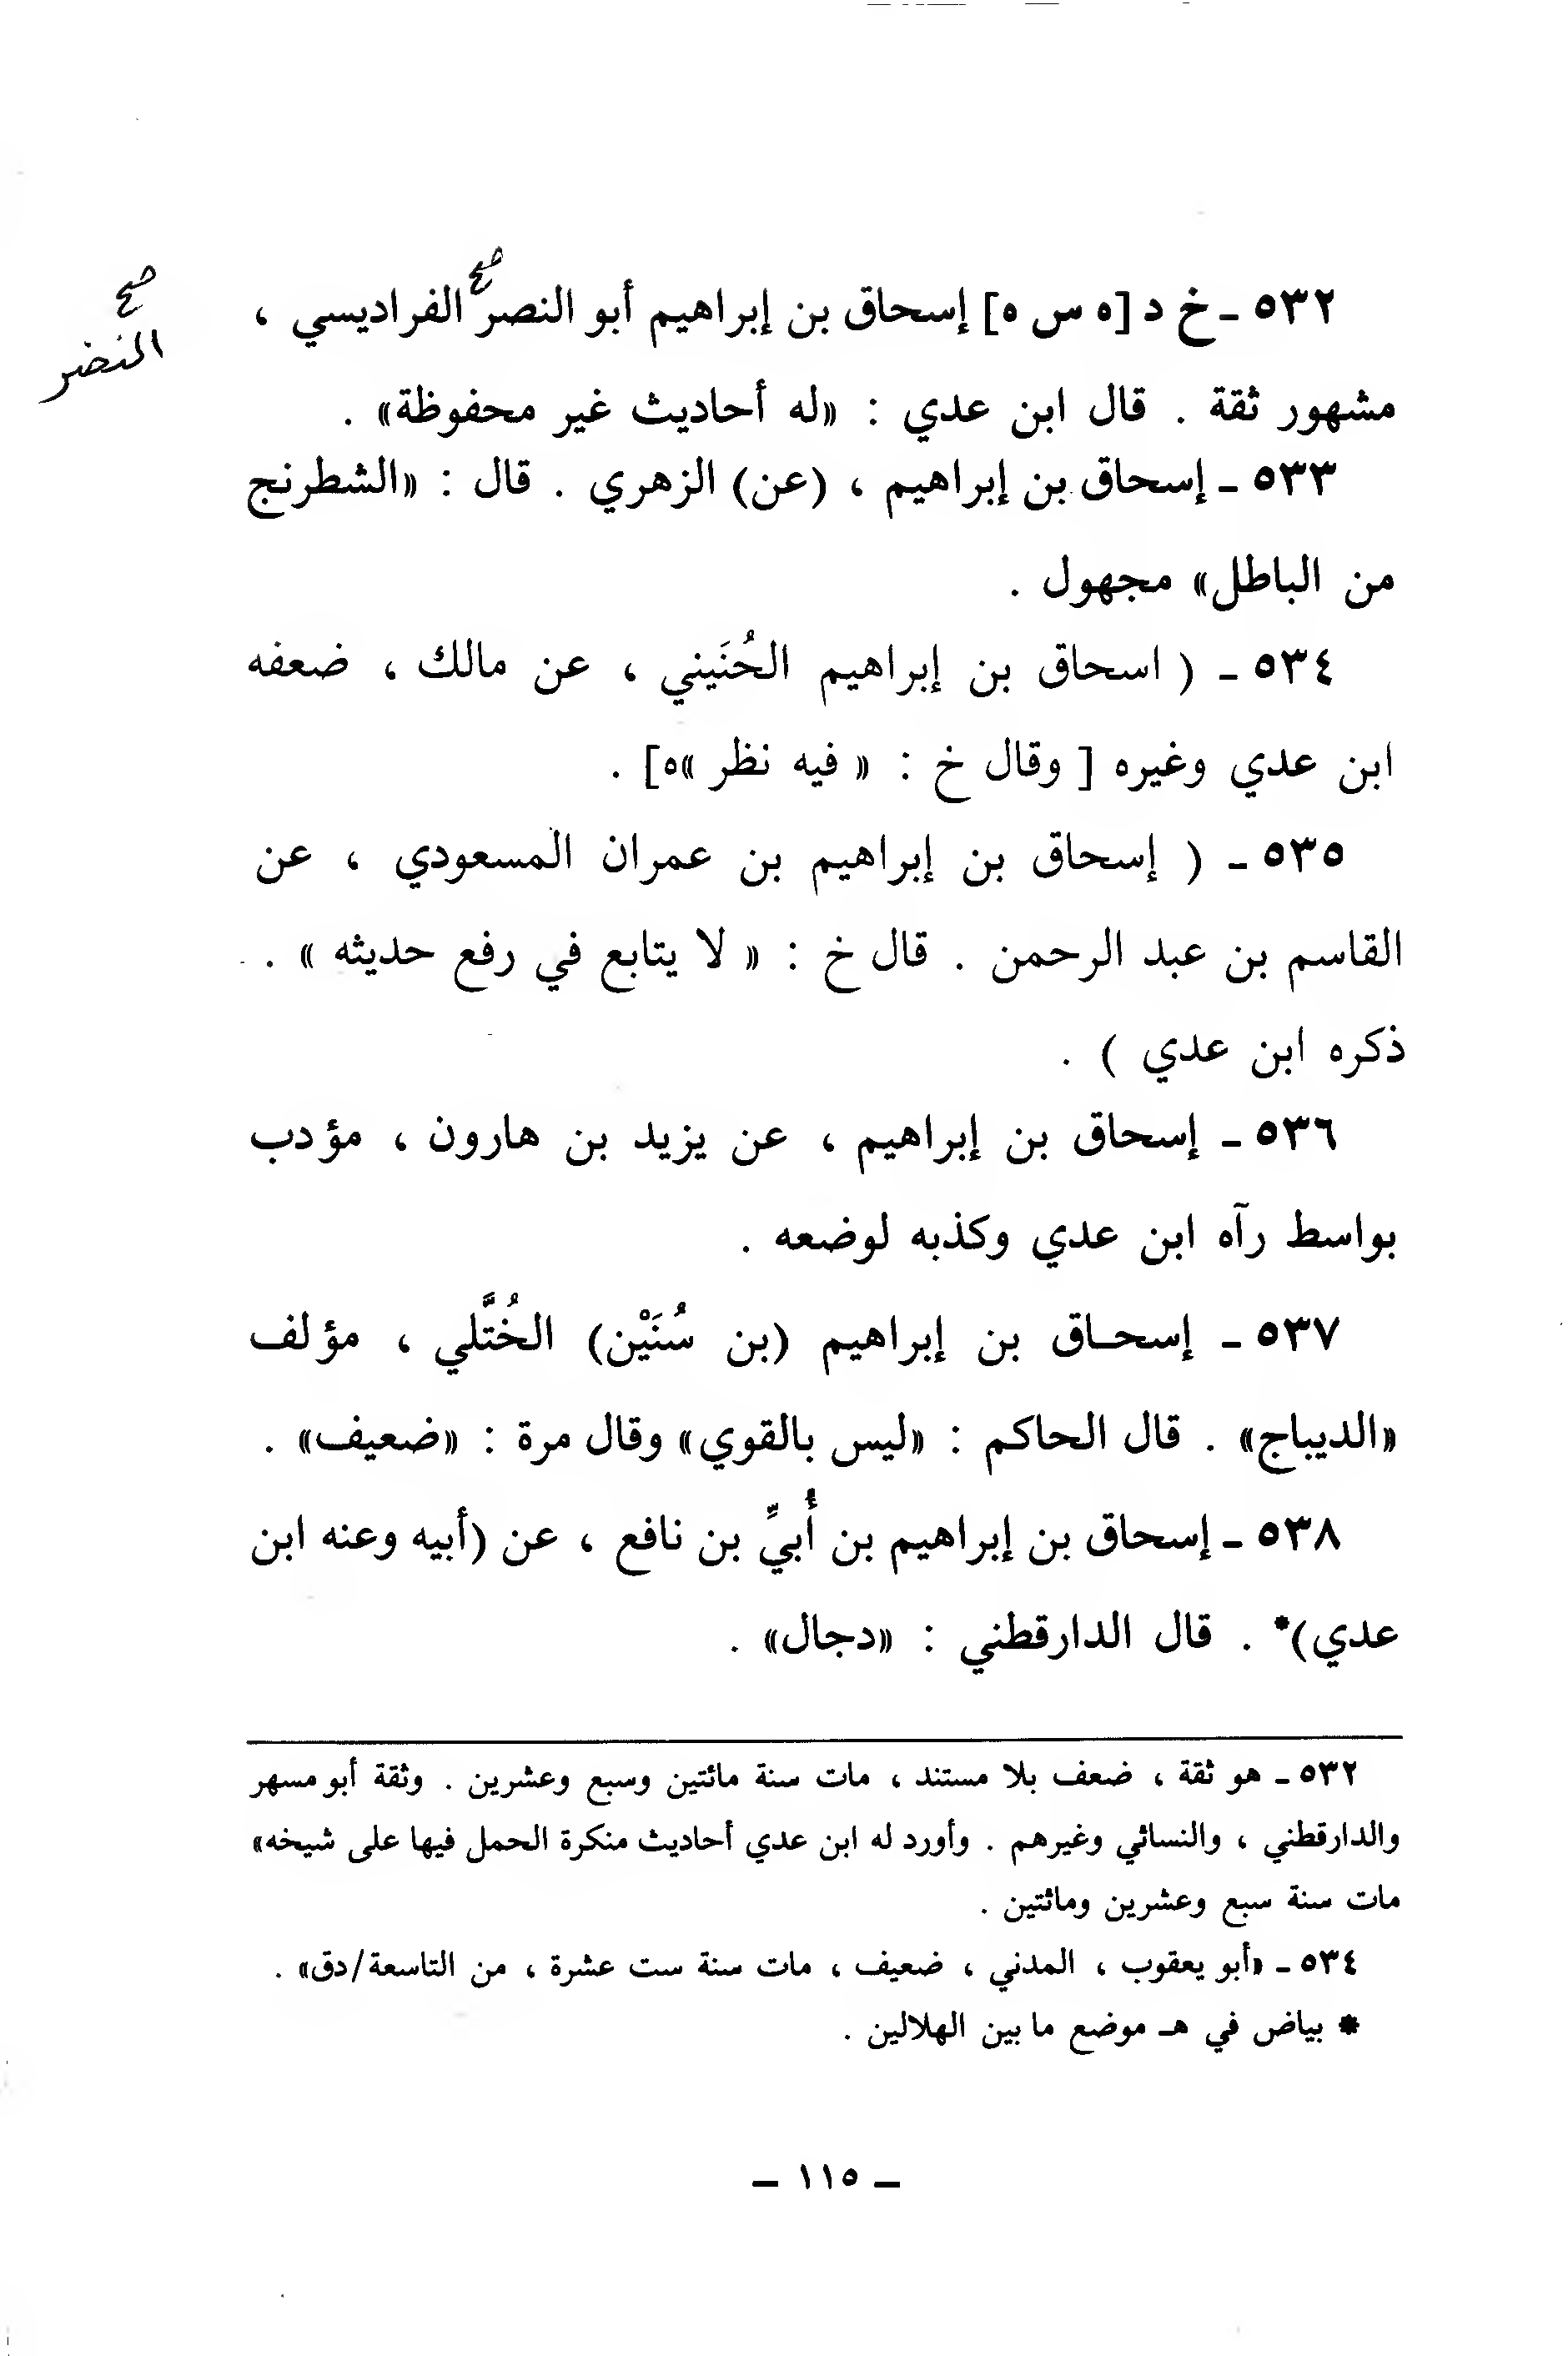 ٥٣٢ ـ خ د [ه س ه] إسحاق بن إبراهيم أبو النصر صح الفراديسي ،
صح
النضر
مشهور ثقة . قال ابن عدي : «له أحاديث غير محفوظة» .
٥٣٣ ـ إسحاق بن إبراهيم ، (عن) الزهري . قال : «الشطرنج
من الباطل» مجهول .
٥٣٤ ـ ( اسحاق بن إبراهيم الحُنَيني ، عن مالك ، ضعفه
ابن عدي وغيره [ وقال خ : « فيه نظر »ه] .
٥٣٥ ـ ( إسحاق بن إبراهيم بن عمران المسعودي ، عن
القاسم بن عبد الرحمن . قال خ : « لا يتابع في رفع حديثه » .
ذكره ابن عدي ) .
٥٣٦ ـ إسحاق بن إبراهيم ، عن يزيد بن هارون ، مؤدب
بواسط رآه ابن عدي وكذبه لوضعه .
٥٣٧ ـ إسحـاق بن إبراهيم (بن سُنَيْن) الخُتَّلي ، مؤلف
«الديباج» . قال الحاكم : «ليس بالقوي» وقال مرة : «ضعيف» .
٥٣٨ ـ إسحاق بن إبراهيم بن أُبيِّ بن نافع ، عن (أبيه وعنه ابن
عدي)* . قال الدارقطني : «دجال» .
٥٣٢ ـ هو ثقة ، ضعف بلا مستند ، مات سنة مائتين وسبع وعشرين . وثقة أبو مسهر
والدارقطني ، والنسائي وغيرهم . وأورد له ابن عدي أحاديث منكرة الحمل فيها على شيخه»
مات سنة سبع وعشرين ومائتين .
٥٣٤ ـ «أبو يعقوب ، المدني ، ضعيف ، مات سنة ست عشرة ، من التاسعة/دق» .
* بياض في هـ موضع ما بين الهلالين .
ـ ١١٥ ـ